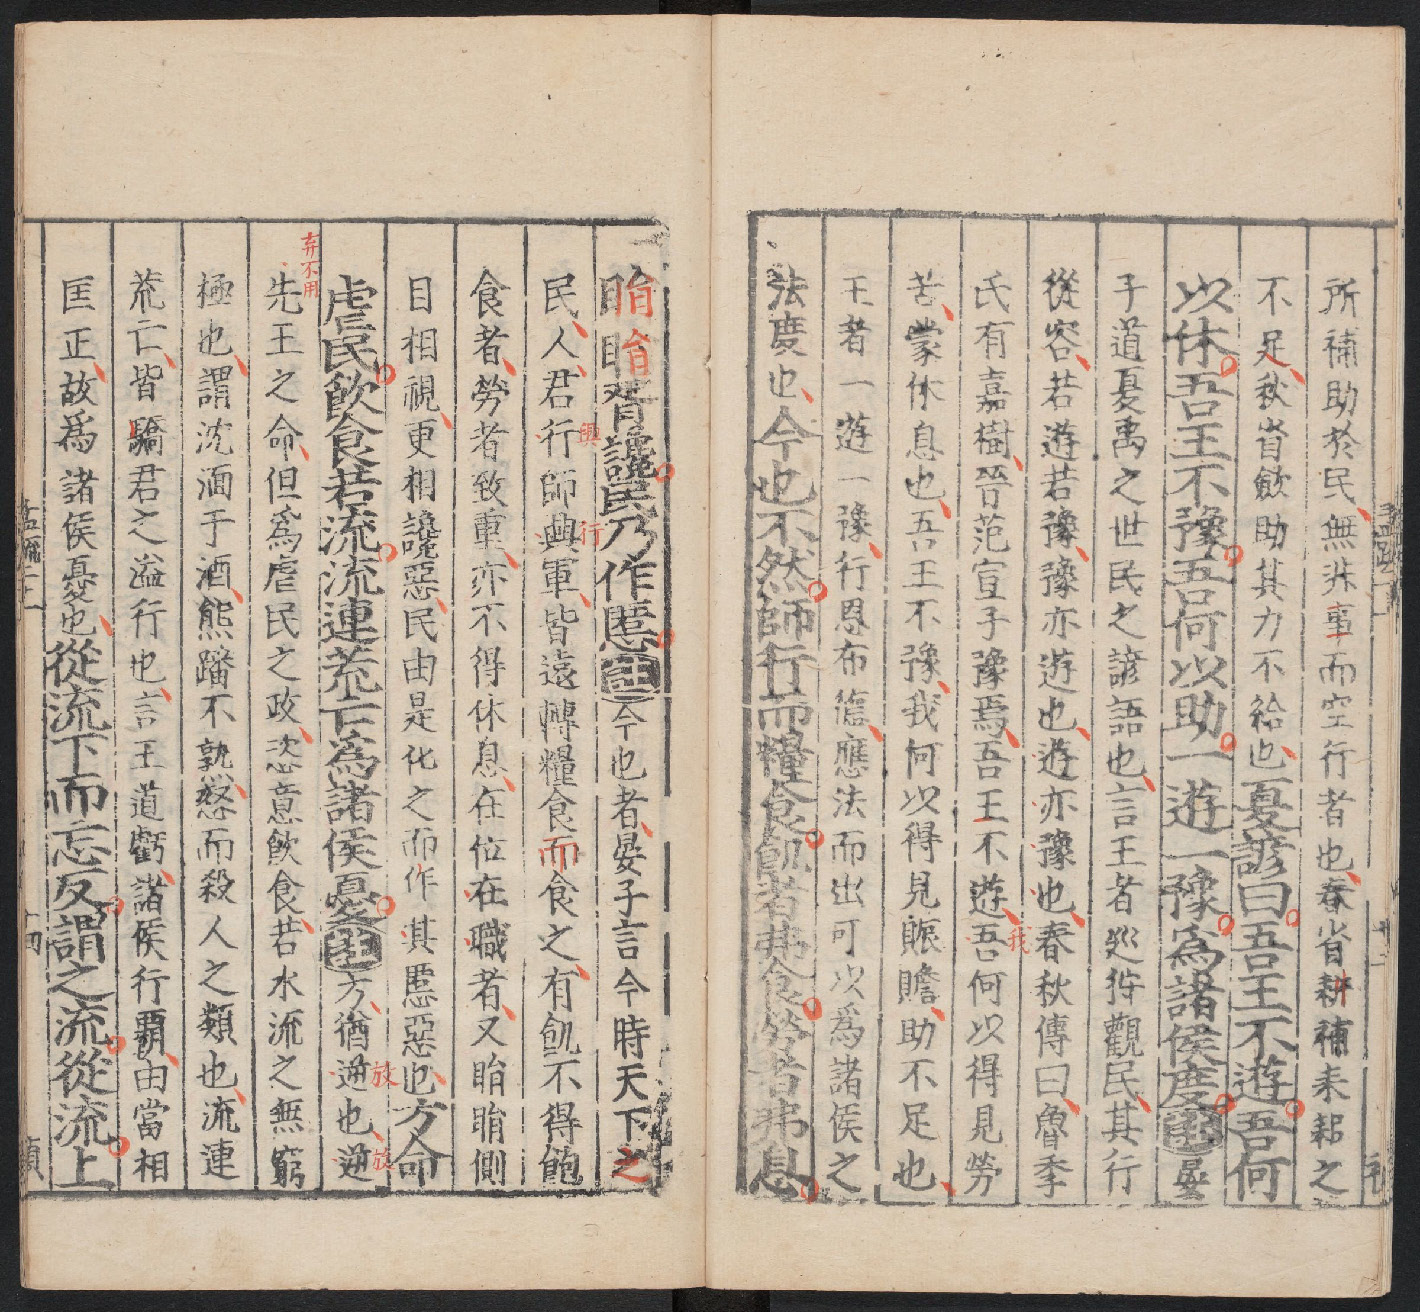 所補助於民無非事而空行者也春省耕補耒耜之
不足秋省斂助其力不給也夏諺曰吾王不遊吾何
以休吾王不豫吾何以助一遊一豫爲諸侯度注晏
子道夏禹之世民之諺語也言王者巡狩觀民其行
從容若遊若豫豫亦遊也遊亦豫也春秋傳曰魯季
氏有嘉樹晉范宣子豫焉吾王不遊吾何以得見勞
我
苦蒙休息也吾王不豫我何以得見賑贍助不足也
王者一遊一豫行恩布德應法而出可以爲諸侯之
法度也今也不然師行而糧食飢者弗食勞者弗息
睊睊胥讒民乃作慝注今也者晏子言今時天下之
民人君行師興軍皆遠轉糧食而食之有飢不得飽
興
行
食者勞者致重亦不得休息在位在職者又睊睊側
目相視更相讒惡民由是化之而作其慝惡也方命
虐民飲食若流流連荒亡爲諸侯憂注方猶逆也逆
放
放
弃不用
先王之命但爲虐民之政恣意飲食若水流之無窮
極也謂沈湎于酒熊蹯不孰怒而殺人之類也流連
荒亡皆驕君之溢行也言王道虧諸侯行霸由當相
匡正故爲諸侯憂也從流下而忘反謂之流從流上
孟疏二上
十四